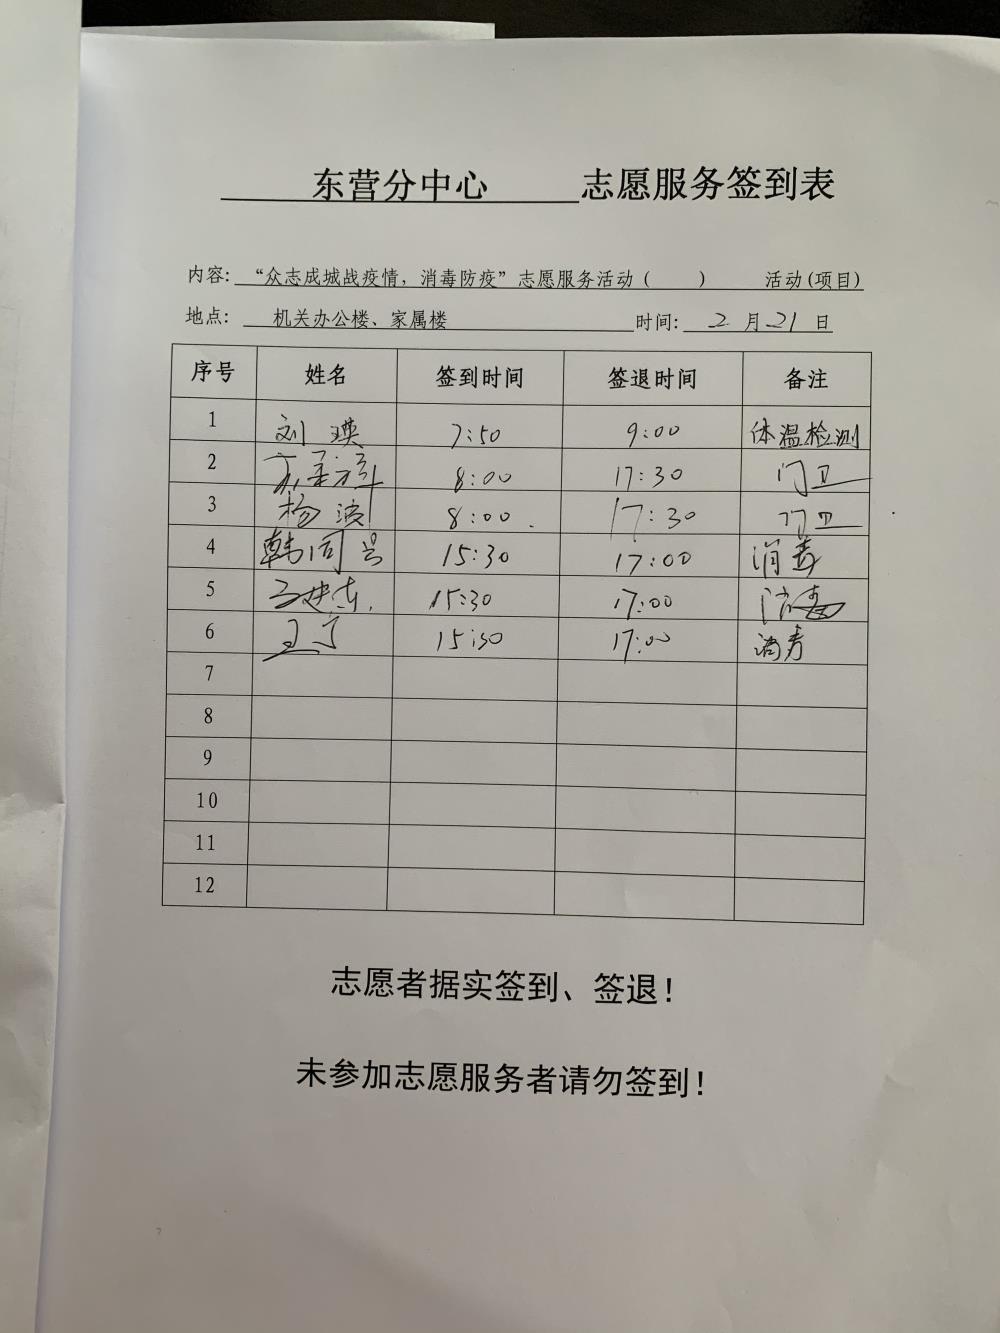 东营分中心 志愿服务签到表
内容: “众志成城战疫情，消毒防疫”志愿服务活动（ ） 活动(项目)
地点: 机关办公楼、家属楼 时间: 2 月 21 日
序号 姓名 签到时间 签退时间 备注
1 刘瑛 7:50 9:00 体温检测
2 8:00 17:30 门卫
3 杨 8:00 17:30 门卫
4 韩同 15:30 17:00 消毒
5 15:30 17:00 消毒
6 王 15:30 17:00 消毒
7
8
9
10
11
12
志愿者据实签到、签退！
未参加志愿服务者请勿签到！